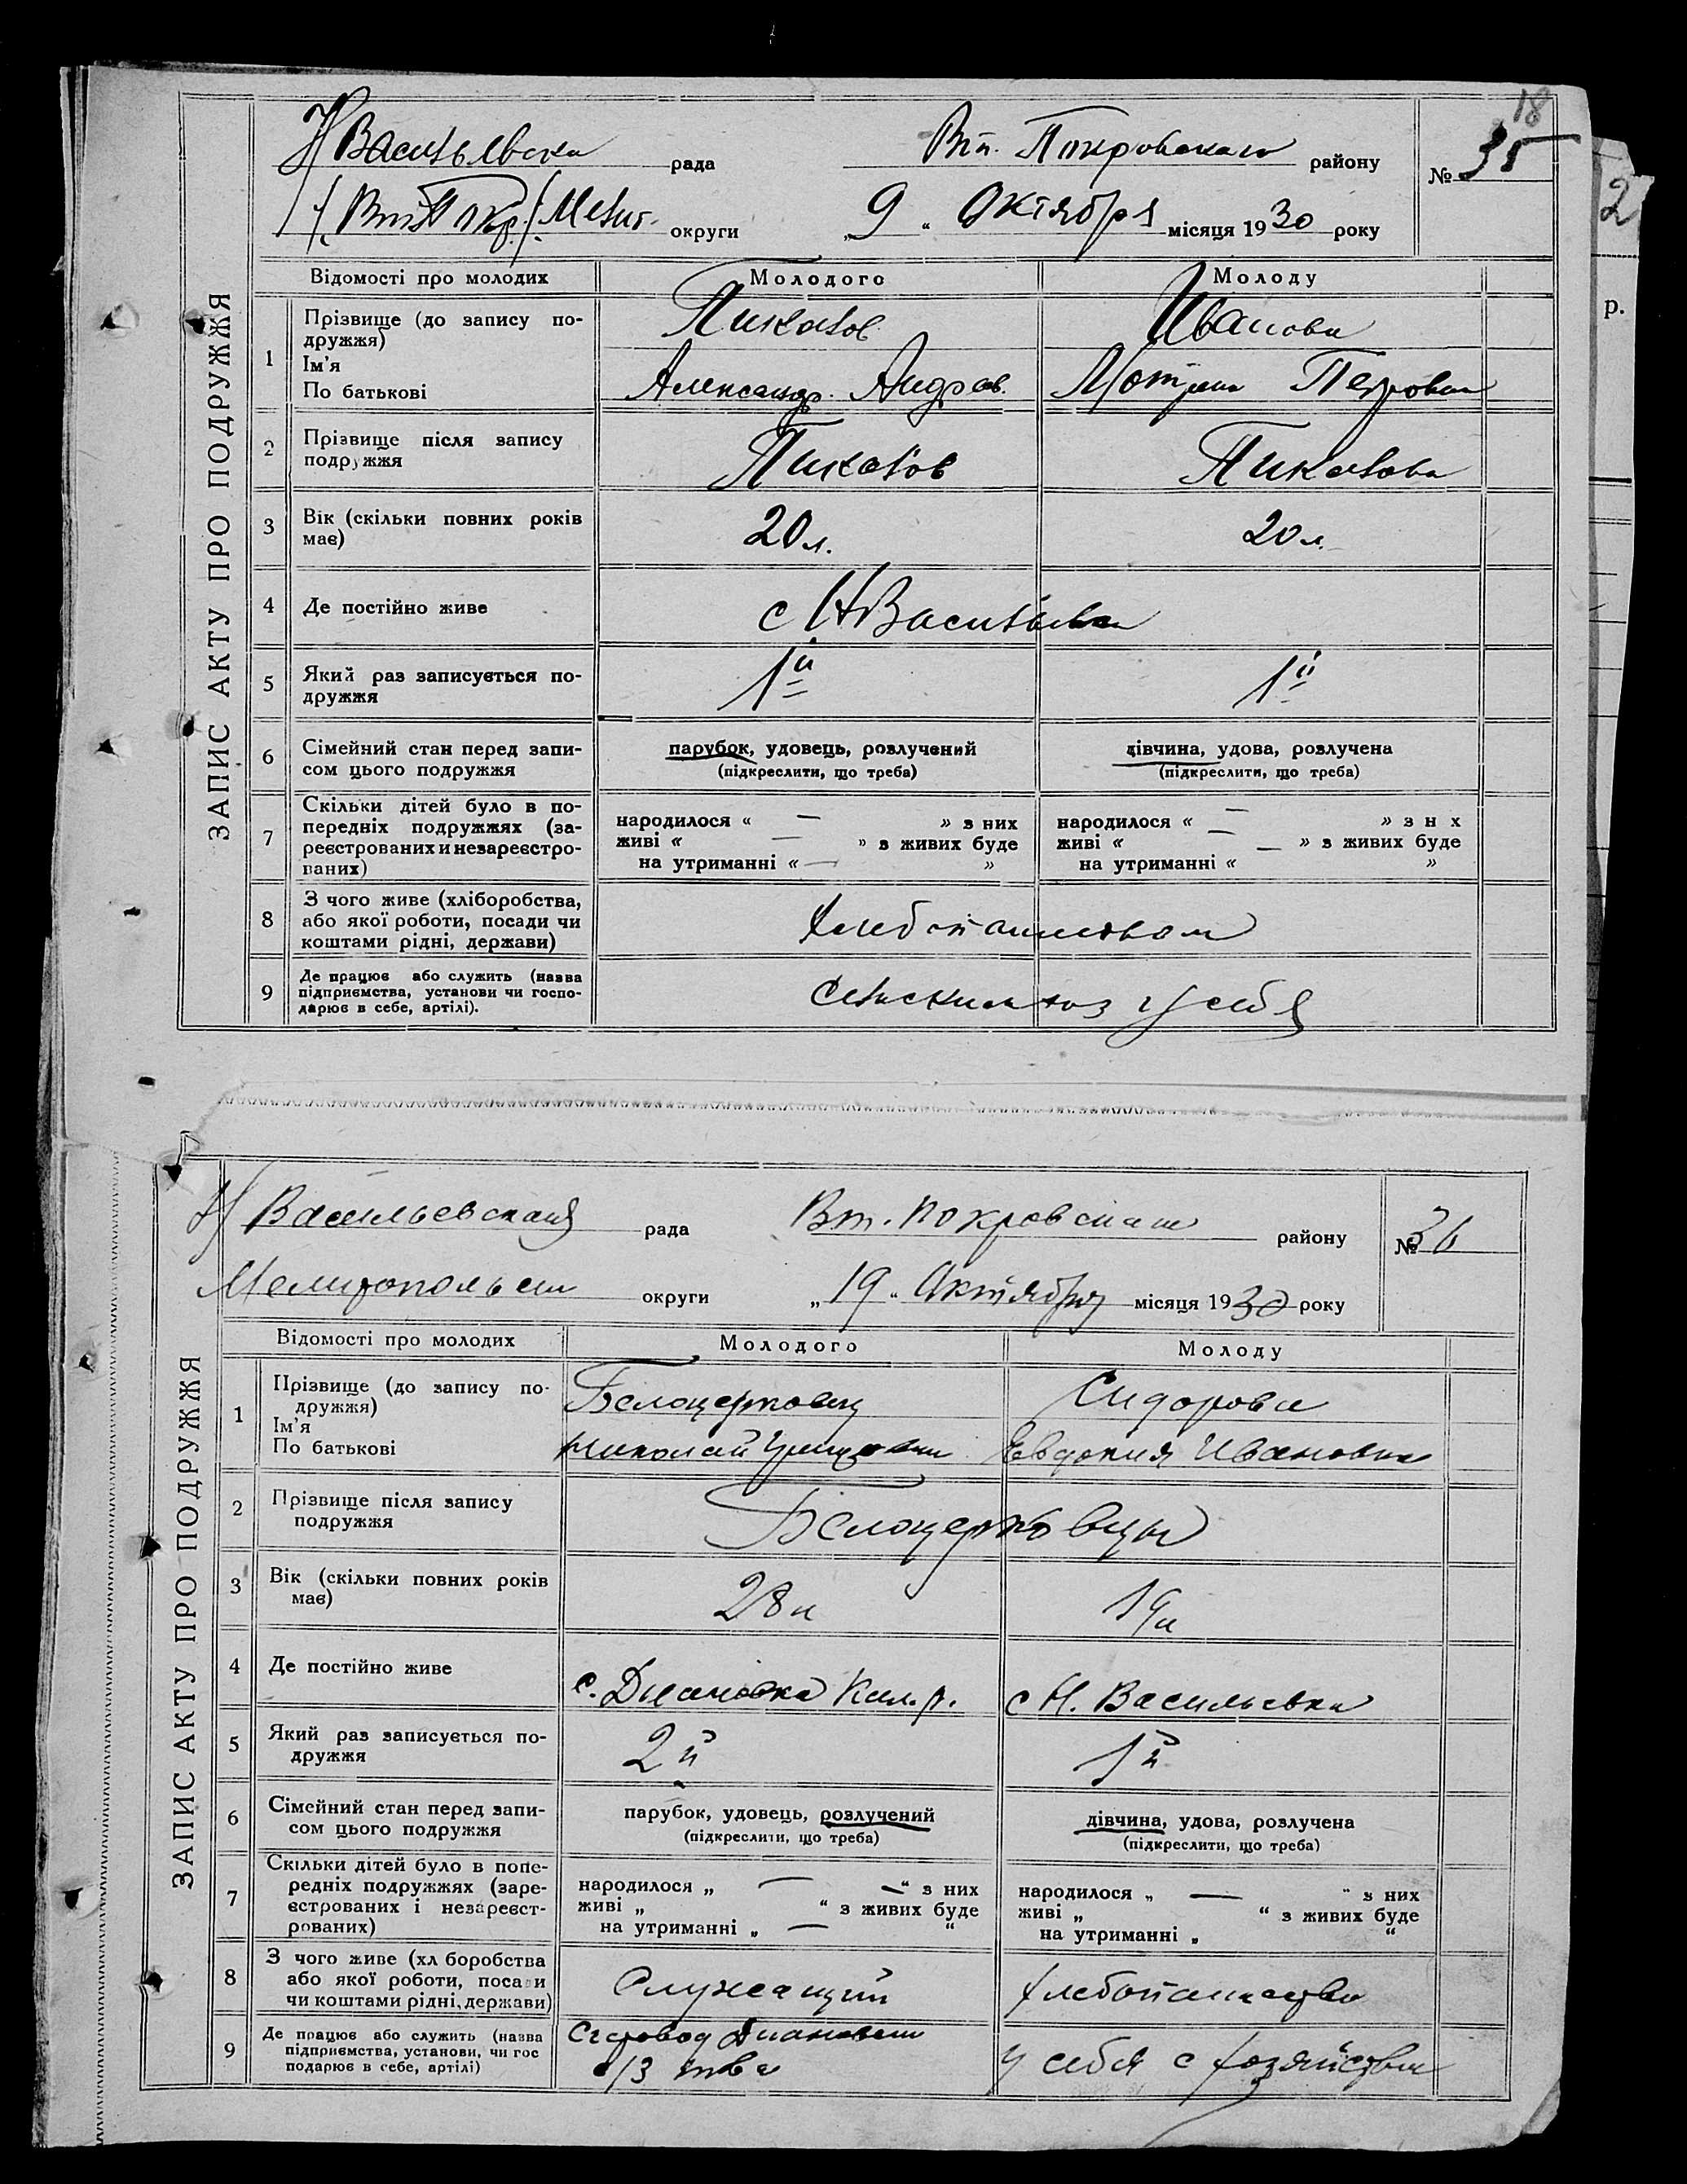 18
НВасильевска рада Вт. Покровского району № 35
округи „ 9 “ Октября місяця 1930 року
2
р.
ЗАПИС АКТУ ПРО ПОДРУЖЖЯ
Відомості про молодих Молодого Молоду
1 Прізвище (до запису по-
дружжя)
Ім'я
По батькові
Пикалов Иванова
Александр Андреев. Мотрена Петровна
2 Прізвище після запису
подружжя
Пикалов Пикалова
3 Вік (скільки повних років
має)
20 л. 20 л.
4 Де постійно живе с. НВасильевка
5 Який раз записується по-
дружжя
1й 1й
6 Сімейний стан перед запи-
сом цього подружжя
парубок, удовець, розлучений дівчина, удова, розлучена
(підкреслити, що треба) (підкреслити, що треба)
7 Скільки дітей було в по-
передніх подружжях (за-
реєстрованих и незареєстро-
ваних)
народилося « — » з них народилося « — » з н х
живі « — » з живих буде живі « — — » з живих буде
на утриманні « — » на утриманні « »
8 З чого живе (хліборобства,
або якої роботи, посади чи
коштами рідні, держави)
9 Де працює або служить (назва
підприємства, установи чи госпо-
дарює в себе, артілі).
у себя
Н Васильевская рада Вт. Покровского району № 36
Мелитопольск округи „ 19 “ Октября місяця 1930 року
ЗАПИС АКТУ ПРО ПОДРУЖЖЯ
Відомості про молодих Молодого Молоду
1 Прізвище (до запису по-
дружжя)
Ім'я
По батькові
Белоцерковец Сидорова
Николай Евдокия Ивановна
2 Прізвище після запису
подружжя
Белоцерковцы
3 Вік (скільки повних років
має)
28 л 19 л
4 Де постійно живе с. Диановка с Н. Васильевка
5 Який раз записується по-
дружжя
2й 1й
6 Сімейний стан перед запи-
сом цього подружжя
парубок, удовець, розлучений дівчина, удова, розлучена
(підкреслити, що треба) (підкреслити, що треба)
7 Скільки дітей було в попе-
редніх подружжях (заре-
єстрованих і незареєст-
рованих)
народилося „ — —“ з них народилося „ — “ з них
живі „ “ з живих буде живі „ “ з живих буде
на утриманні „ — “ на утриманні „ “
8 З чого живе (хл боробства
або якої роботи, посади
чи коштами рідні, держави)
Служащий Хлебопашество
9 Де працює або служить (назва
підприємства, установи, чи гос
подарює в себе, артілі)
Счетовод
с/з тва у себя с хозяйства